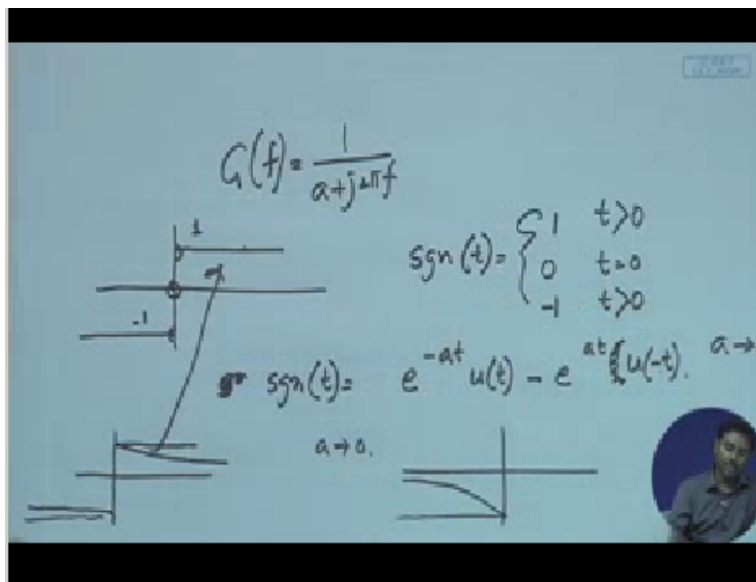 G(f) = 1/(a+j2πf)
1
-1
sgn(t) = { 1 t>0
0 t=0
-1 t>0
sgn(t) = e^{-at} u(t) - e^{at} u(-t). a→
a→0.